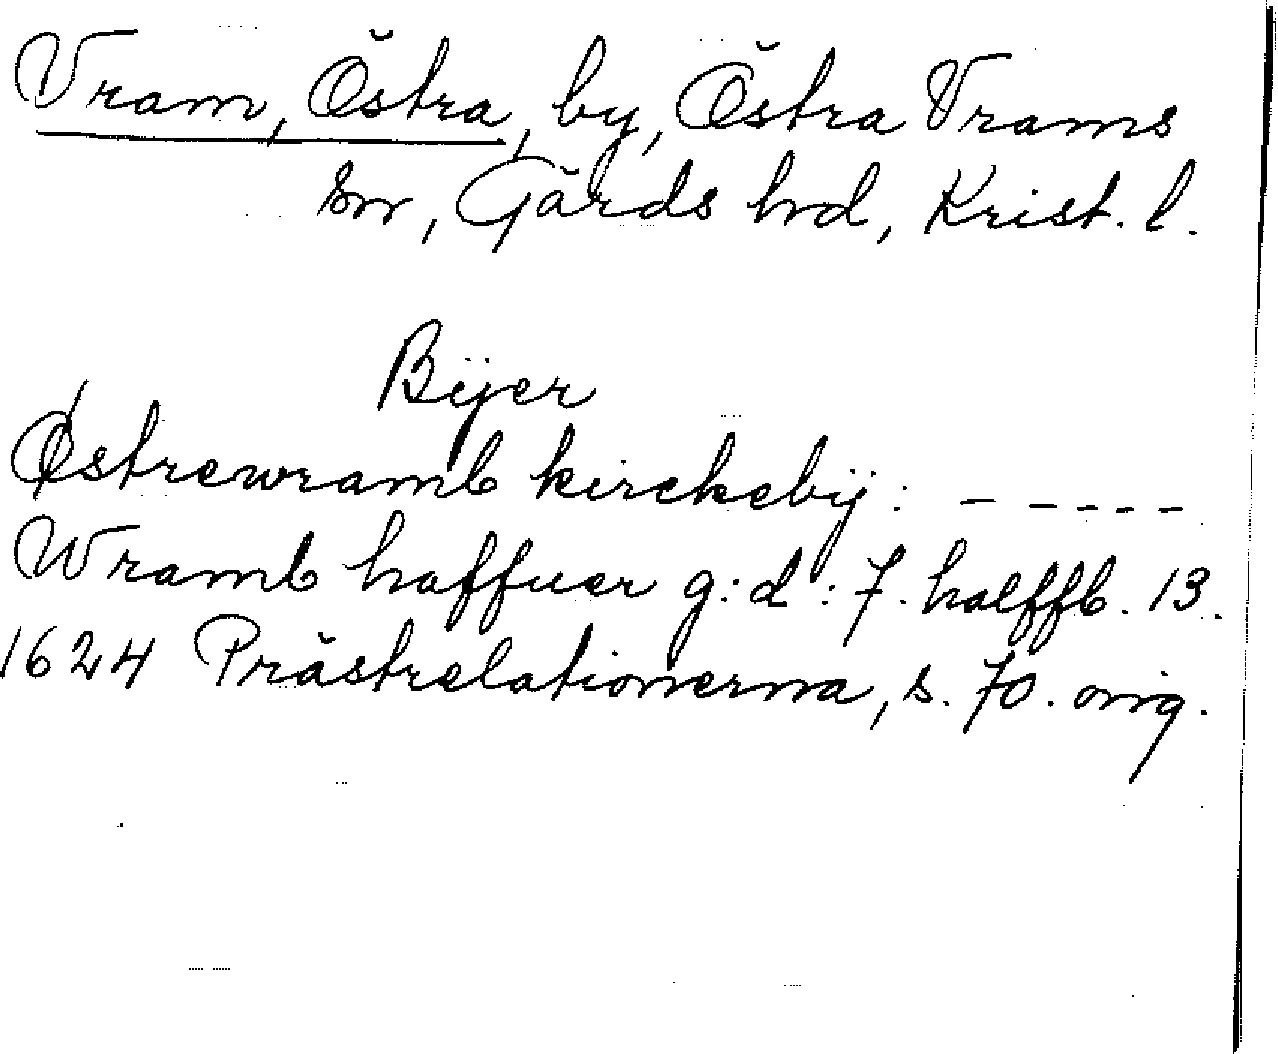 Vram, Östra, by, Östra Vrams
sn, Gärds hrd, Krist. l.
Bÿer
Østrewramb kirckebÿ: - - - - -
Wramb haffuer g:d: 7. halffb. 13.
1624 Prästrelationerna, s. 70. orig.